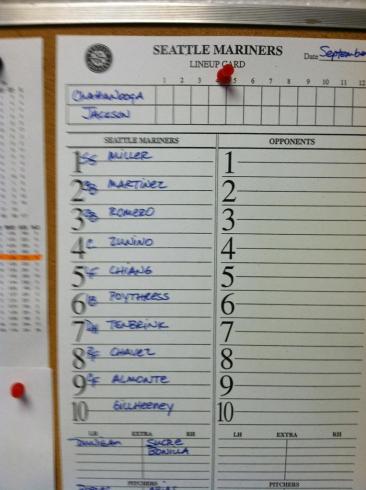 SEATTLE MARINERS
LINEUP CARD
Date September
1 2 3 4 5 6 7 8 9 10 11 12
CHATTANOOGA
JACKSON
SEATTLE MARINERS OPPONENTS
1 SS MILLER 1
2 2B MARTINEZ 2
3 3B ROMERO 3
4 C ZUNINO 4
5 LF CHIANG 5
6 1B POYTHRESS 6
7 DH TENBRINK 7
8 RF CHAVEZ 8
9 CF ALMONTE 9
10 GILLHEENEY 10
LH EXTRA RH LH EXTRA RH
DUNIGAN SUCRE
BONILLA
PITCHERS PITCHERS